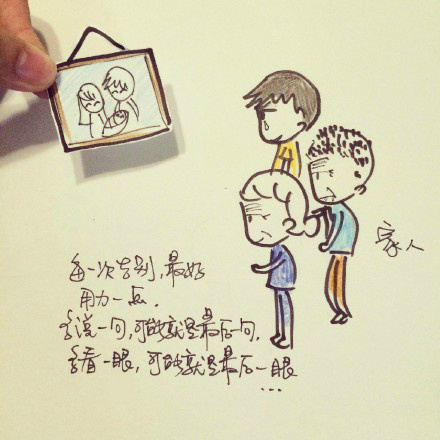 家人
每一次告别,最好
用力一点.
多说一句,可能就是最后一句,
多看一眼,可能就是最后一眼
...